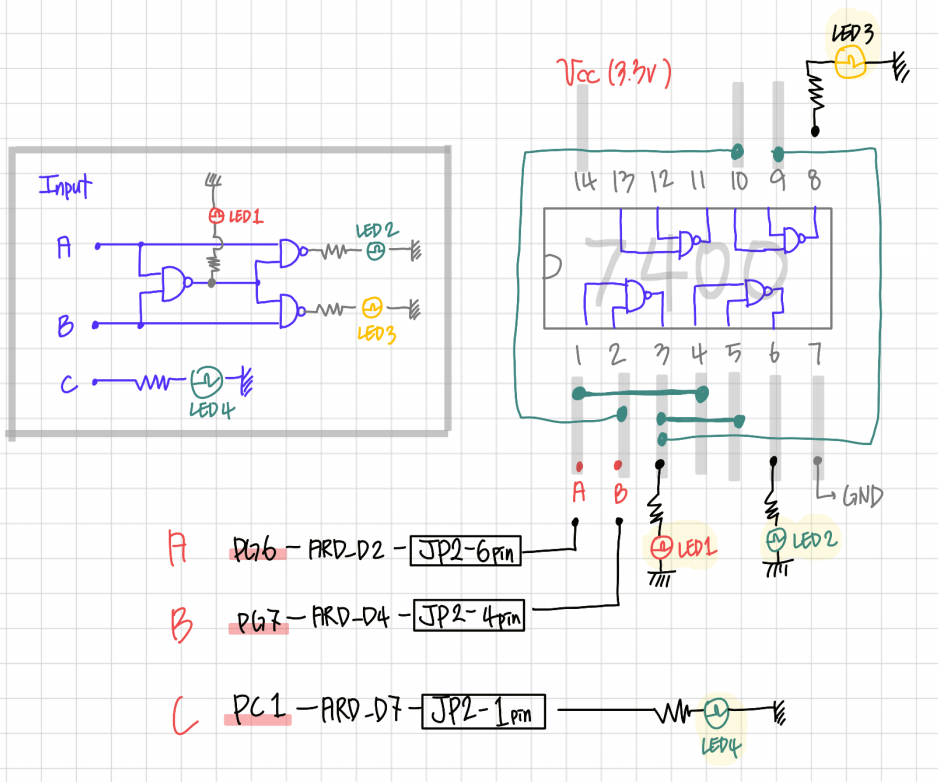 LED3
Vcc (3.3V)
Input
LED1
A
LED2
B
LED3
C
LED4
14 13 12 11 10 9 8
7400
1 2 3 4 5 6 7
A B
GND
LED1
LED2
A PG6 - ARD_D2 - JP2-6pin
B PG7 - ARD_D4 - JP2-4pin
C PC1 - ARD_D7 - JP2-1pin
LED4